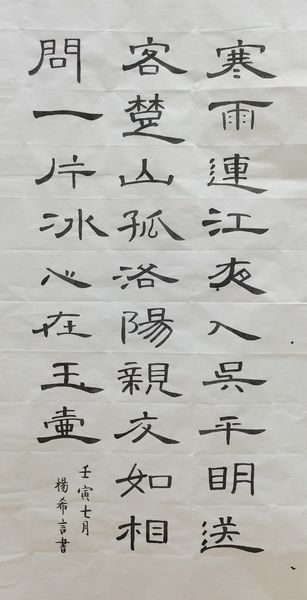 寒雨連江夜入吳平明送
客楚山孤洛陽親友如相
問一片冰心在玉壺
壬寅七月
楊希言書